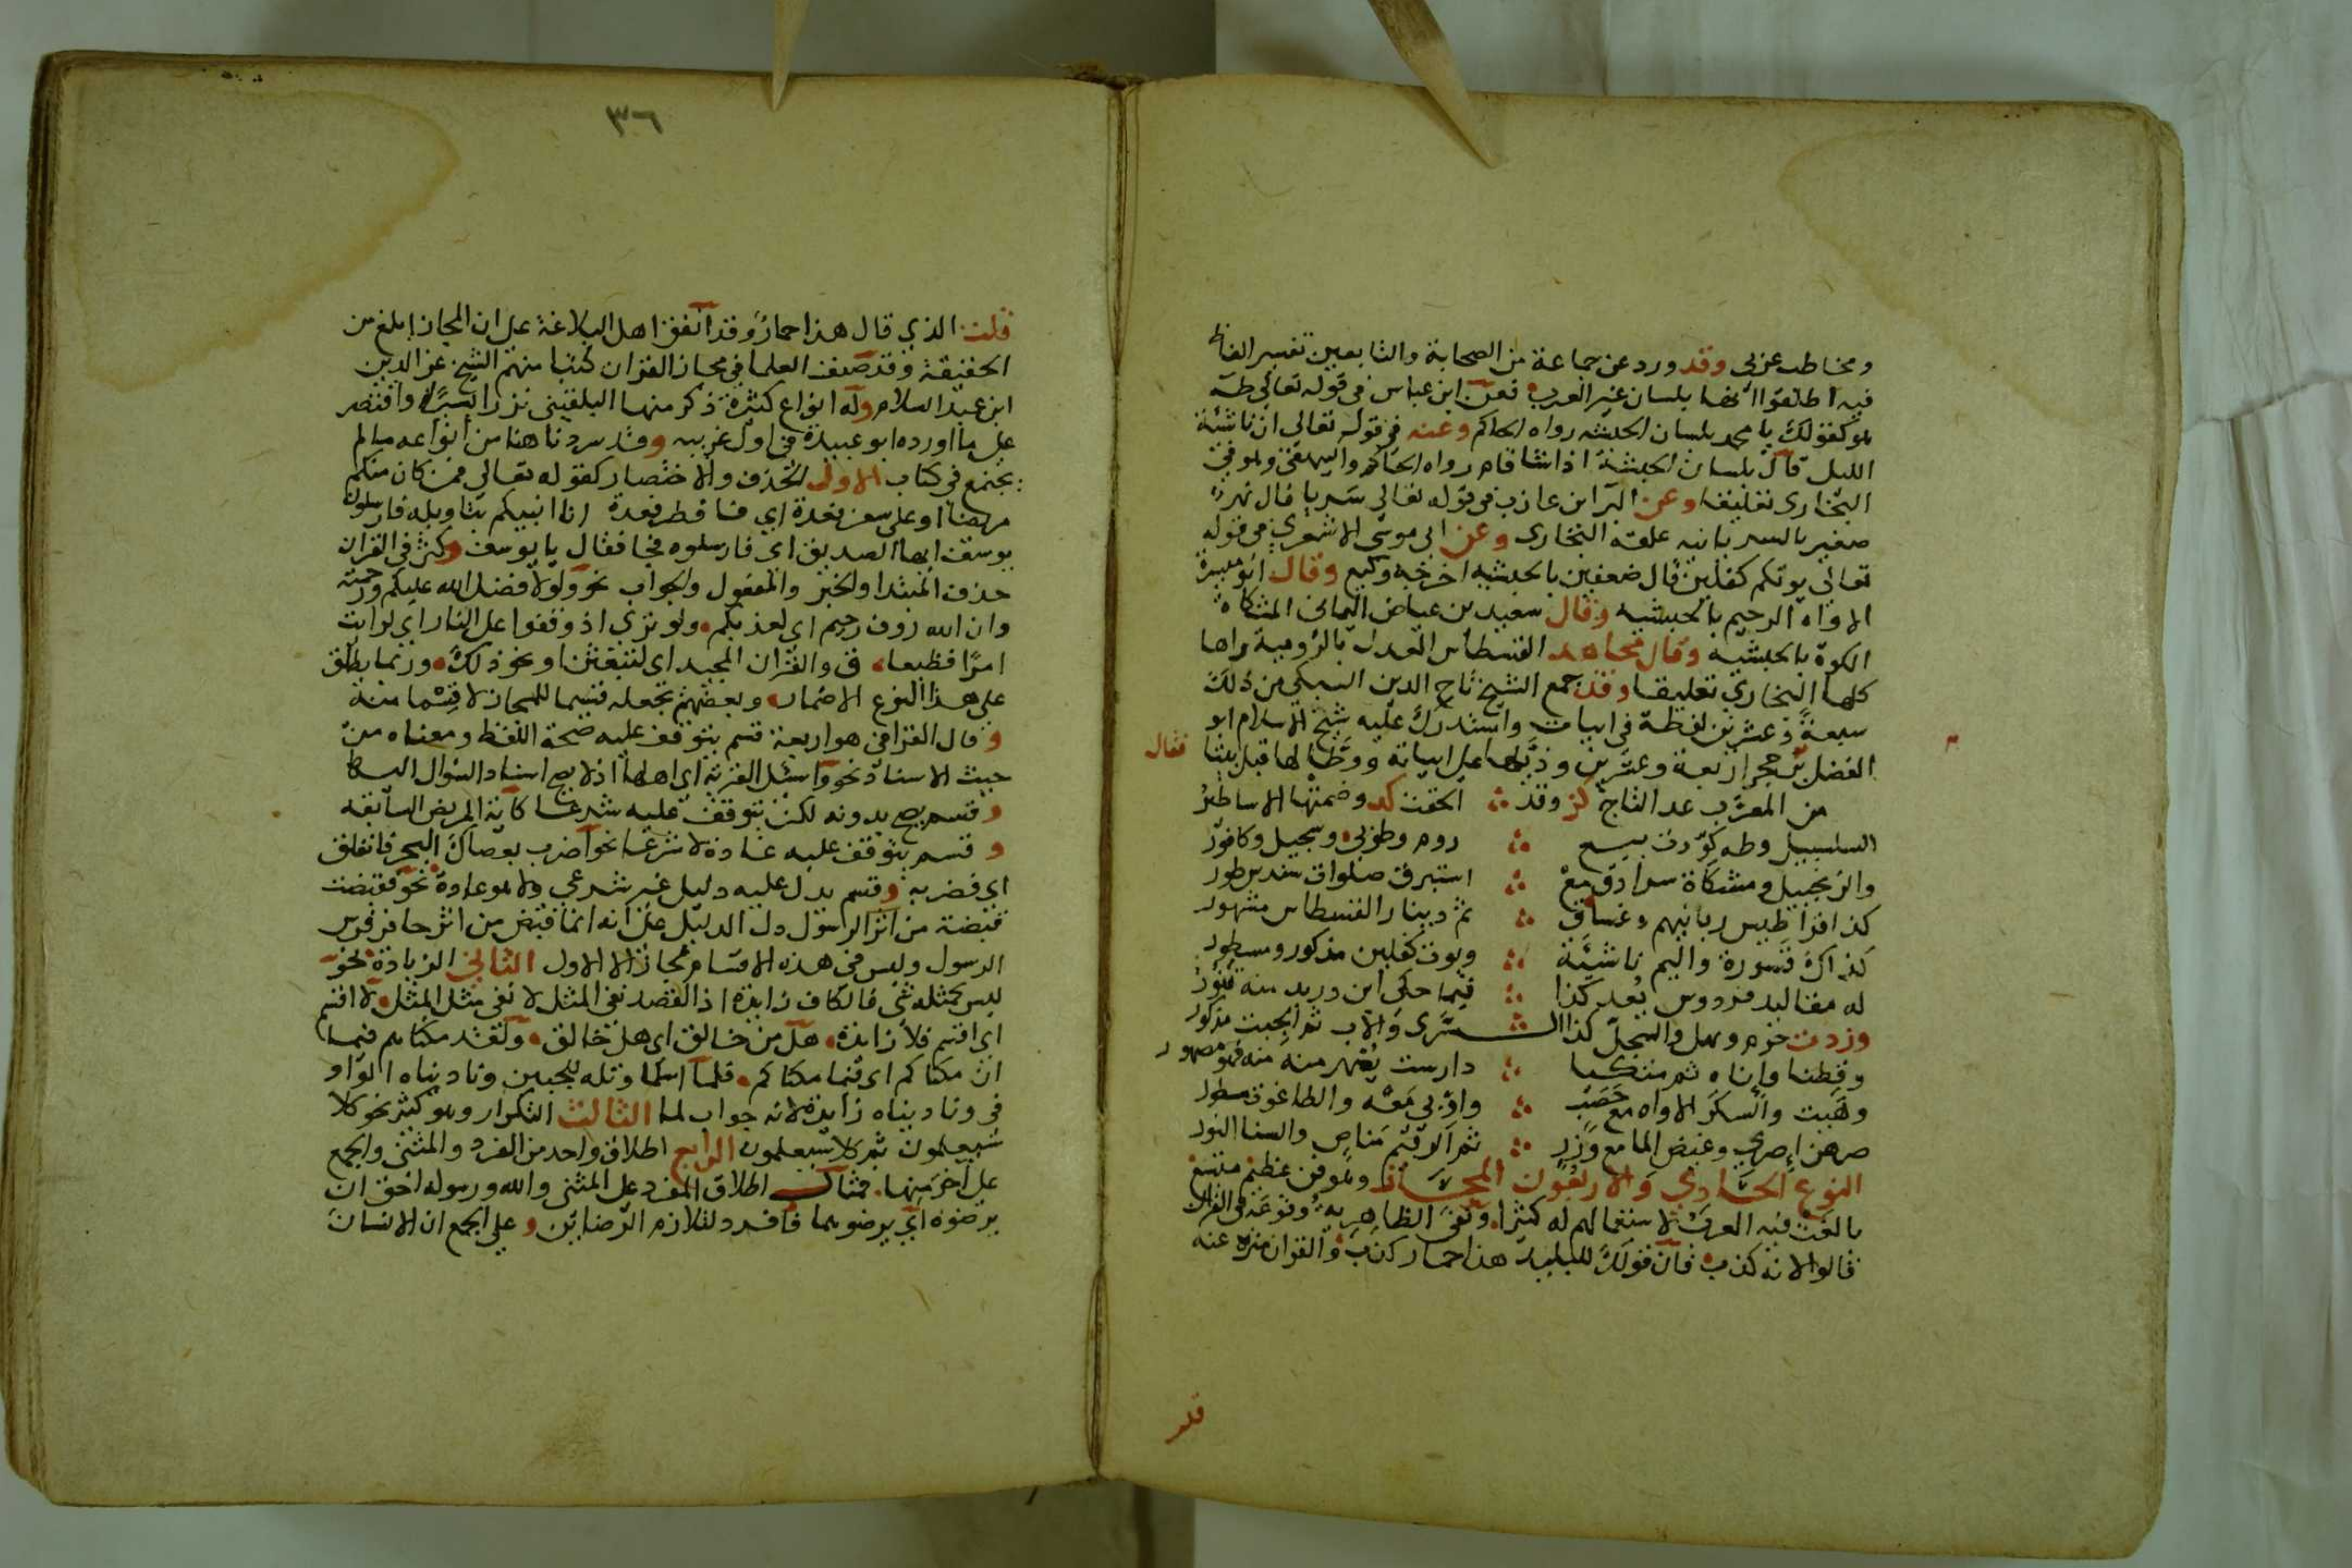 ومخاطب عربي وقد ورد عن جماعة من الصحابة والتابعين تفسير الفاظ
فيه اطلقوا انها بلسان غير العرب فعن ابن عباس في قوله تعالي طه
هو كقولك يا محمد بلسان الحبشه رواه الحاكم وعنه في قوله تعالي ان ناشئة
الليل قال بلسان الحبشة اذا شا قام رواه الحاكم والبيهقي وهو في
البخاري تعليقا وعن البرا بن عازب في قوله تعالي سريا قال نهر
صغير بالسريانيه علقه البخاري وعن ابي موسى الاشعري في قوله
تعالي يوتكم كفلين قال ضعفين بالحبشيه اخرجه وكيع وقال ابو ميسرة
الاواه الرحيم بالحبشيه وقال سعيد بن عياض اليماني المشكاة
الكوة بالحبشيه وقال مجاهد القسطاس العدل بالرومية رواها
كلها البخاري تعليقا وقد جمع الشيخ تاج الدين السبكي من ذلك
سبعة وعشرين لفظة في ابيات واستدرك عليه شيخ الاسلام ابو
الفضل بن حجر اربعة وعشرين وذيلها على ابياته ووطا لها قبل بيتا فقال
من المعرب عد التاج كز وقد الحقت كد وضمنتها الاساطير
السلسبيل وطه كورت بيع روم وطوبى وسجيل وكافور
والزنجبيل ومشكاة سرادق مع استبرق صلوات سندس طور
كذا قراطيس ربانيهم وغساق ثم دينار القسطاس مشهور
كذاك قسورة واليم ناشئة ويوت كفلين مذكور ومسطور
له مقاليد فردوس يعد كذا فيما حكى ابن دريد منه تنور
وزدت حرم ومهل والسجل كذا السري والاب ثم الجبت مذكور
وقطنا وإناه ثم متكئا دارست يصهر منه فهو مصهور
وهيت والسكر الاواه مع حصب واوبي معه والطاغوت مسطور
صرهن إصري وغيض الما مع وزر ثم الرقيم مناص والسنا النور
النوع الحادي والاربعون المجاز وهو فن عظيم متسع
بالغت فيه العرب لاستعمالهم له كثيرا ونفى الظاهرية وقوعه في القران
قالوا لانه كذب فان قولك للبليد هذا حمار كذب والقران منزه عنه
قلت
٣٦
قلت الذي قال هذا حمار وقد اتفق اهل البلاغة على ان المجاز ابلغ من
الحقيقة وقد صنف العلما في مجاز القران كتبا منهم الشيخ عز الدين
ابن عبد السلام وله انواع كثيرة ذكر منها البلقيني نزرا يسيرا واقتصر
على ما اورده ابو عبيدة في اول غريبه وقد سردنا هنا من انواعه مالم
يجتمع في كتاب الاول الحذف والاختصار كقوله تعالي فمن كان منكم
مريضا او على سفر فعدة اي فافطر فعدة انا انبيكم بتاويله فارسلون
يوسف ايها الصديق اي فارسلوه فجا فقال يا يوسف وكثر في القران
حذف المبتدا والخبر والمفعول والجواب نحو ولولا فضل الله عليكم ورحمته
وان الله روف رحيم اي لعذبكم ولو ترى اذ وقفوا على النار اي لرايت
امرا فظيعا ق والقران المجيد اي لتبعثن او نحو ذلك وربما يطلق
على هذا النوع الاضمار وبعضهم يجعله قسيما للمجاز لا قسما منه
وقال القرافي هو اربعة قسم يتوقف عليه صحة اللفظ ومعناه من
حيث الاسناد نحو واسئل القرية اي اهلها اذ لا يصح اسناد السوال اليها
وقسم يصح بدونه لكن يتوقف عليه شرعا كآية المريض السابقه
وقسم يتوقف عليه عادة لا شرعا نحو اضرب بعصاك البحر فانفلق
اي فضربه وقسم يدل عليه دليل غير شرعي ولا هو عادة نحو فقبضت
قبضة من اثر الرسول دل الدليل على انه انما قبض من اثر حافر فرس
الرسول وليس في هذه الاقسام مجاز الا الاول الثاني الزيادة نحو
ليس كمثله شي فالكاف زايدة اذ القصد نفي المثل لا نفي مثل المثل لا اقسم
اي اقسم فلا زايدة هل من خالق اي هل خالق ولقد مكناهم فيما
ان مكناكم اي فيما مكناكم فلما اسلما وتله للجبين وناديناه الواو
في وناديناه زايدة لانه جواب لما الثالث التكرار وهو كثير نحو كلا
سيعلمون ثم كلا سيعلمون الرابع اطلاق واحد من الفرد والمثنى والجمع
على آخر منها فمثال اطلاق المفرد على المثنى والله ورسوله احق ان
يرضوه اي يرضوهما فافرد لتلازم الرضايين وعلى الجمع ان الانسان